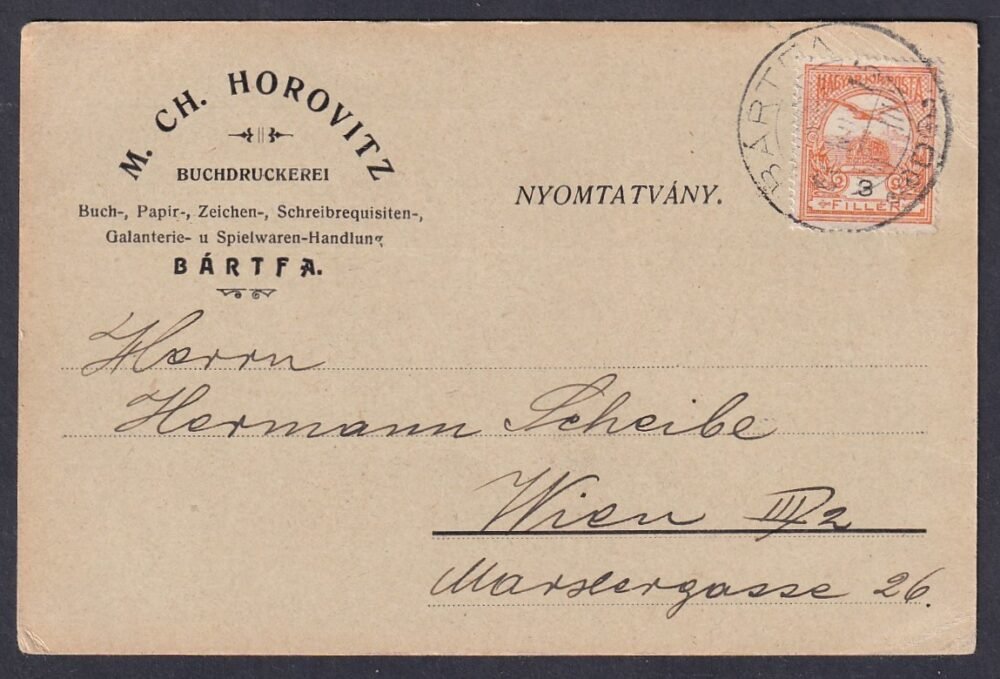 M. CH. HOROVITZ
BUCHDRUCKEREI
Buch-, Papir-, Zeichen-, Schreibrequisiten-,
Galanterie- u Spielwaren-Handlung
BÁRTFA.
NYOMTATVÁNY.
BÁRTFA
MAGYAR KIR. POSTA
3
FILLÉR
Herrn
Hermann Scheibe
Wien III/2
Marxergasse 26.